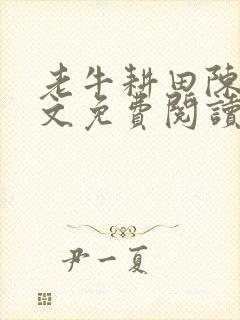 老牛耕田陳
文免費閱讀
尹一夏